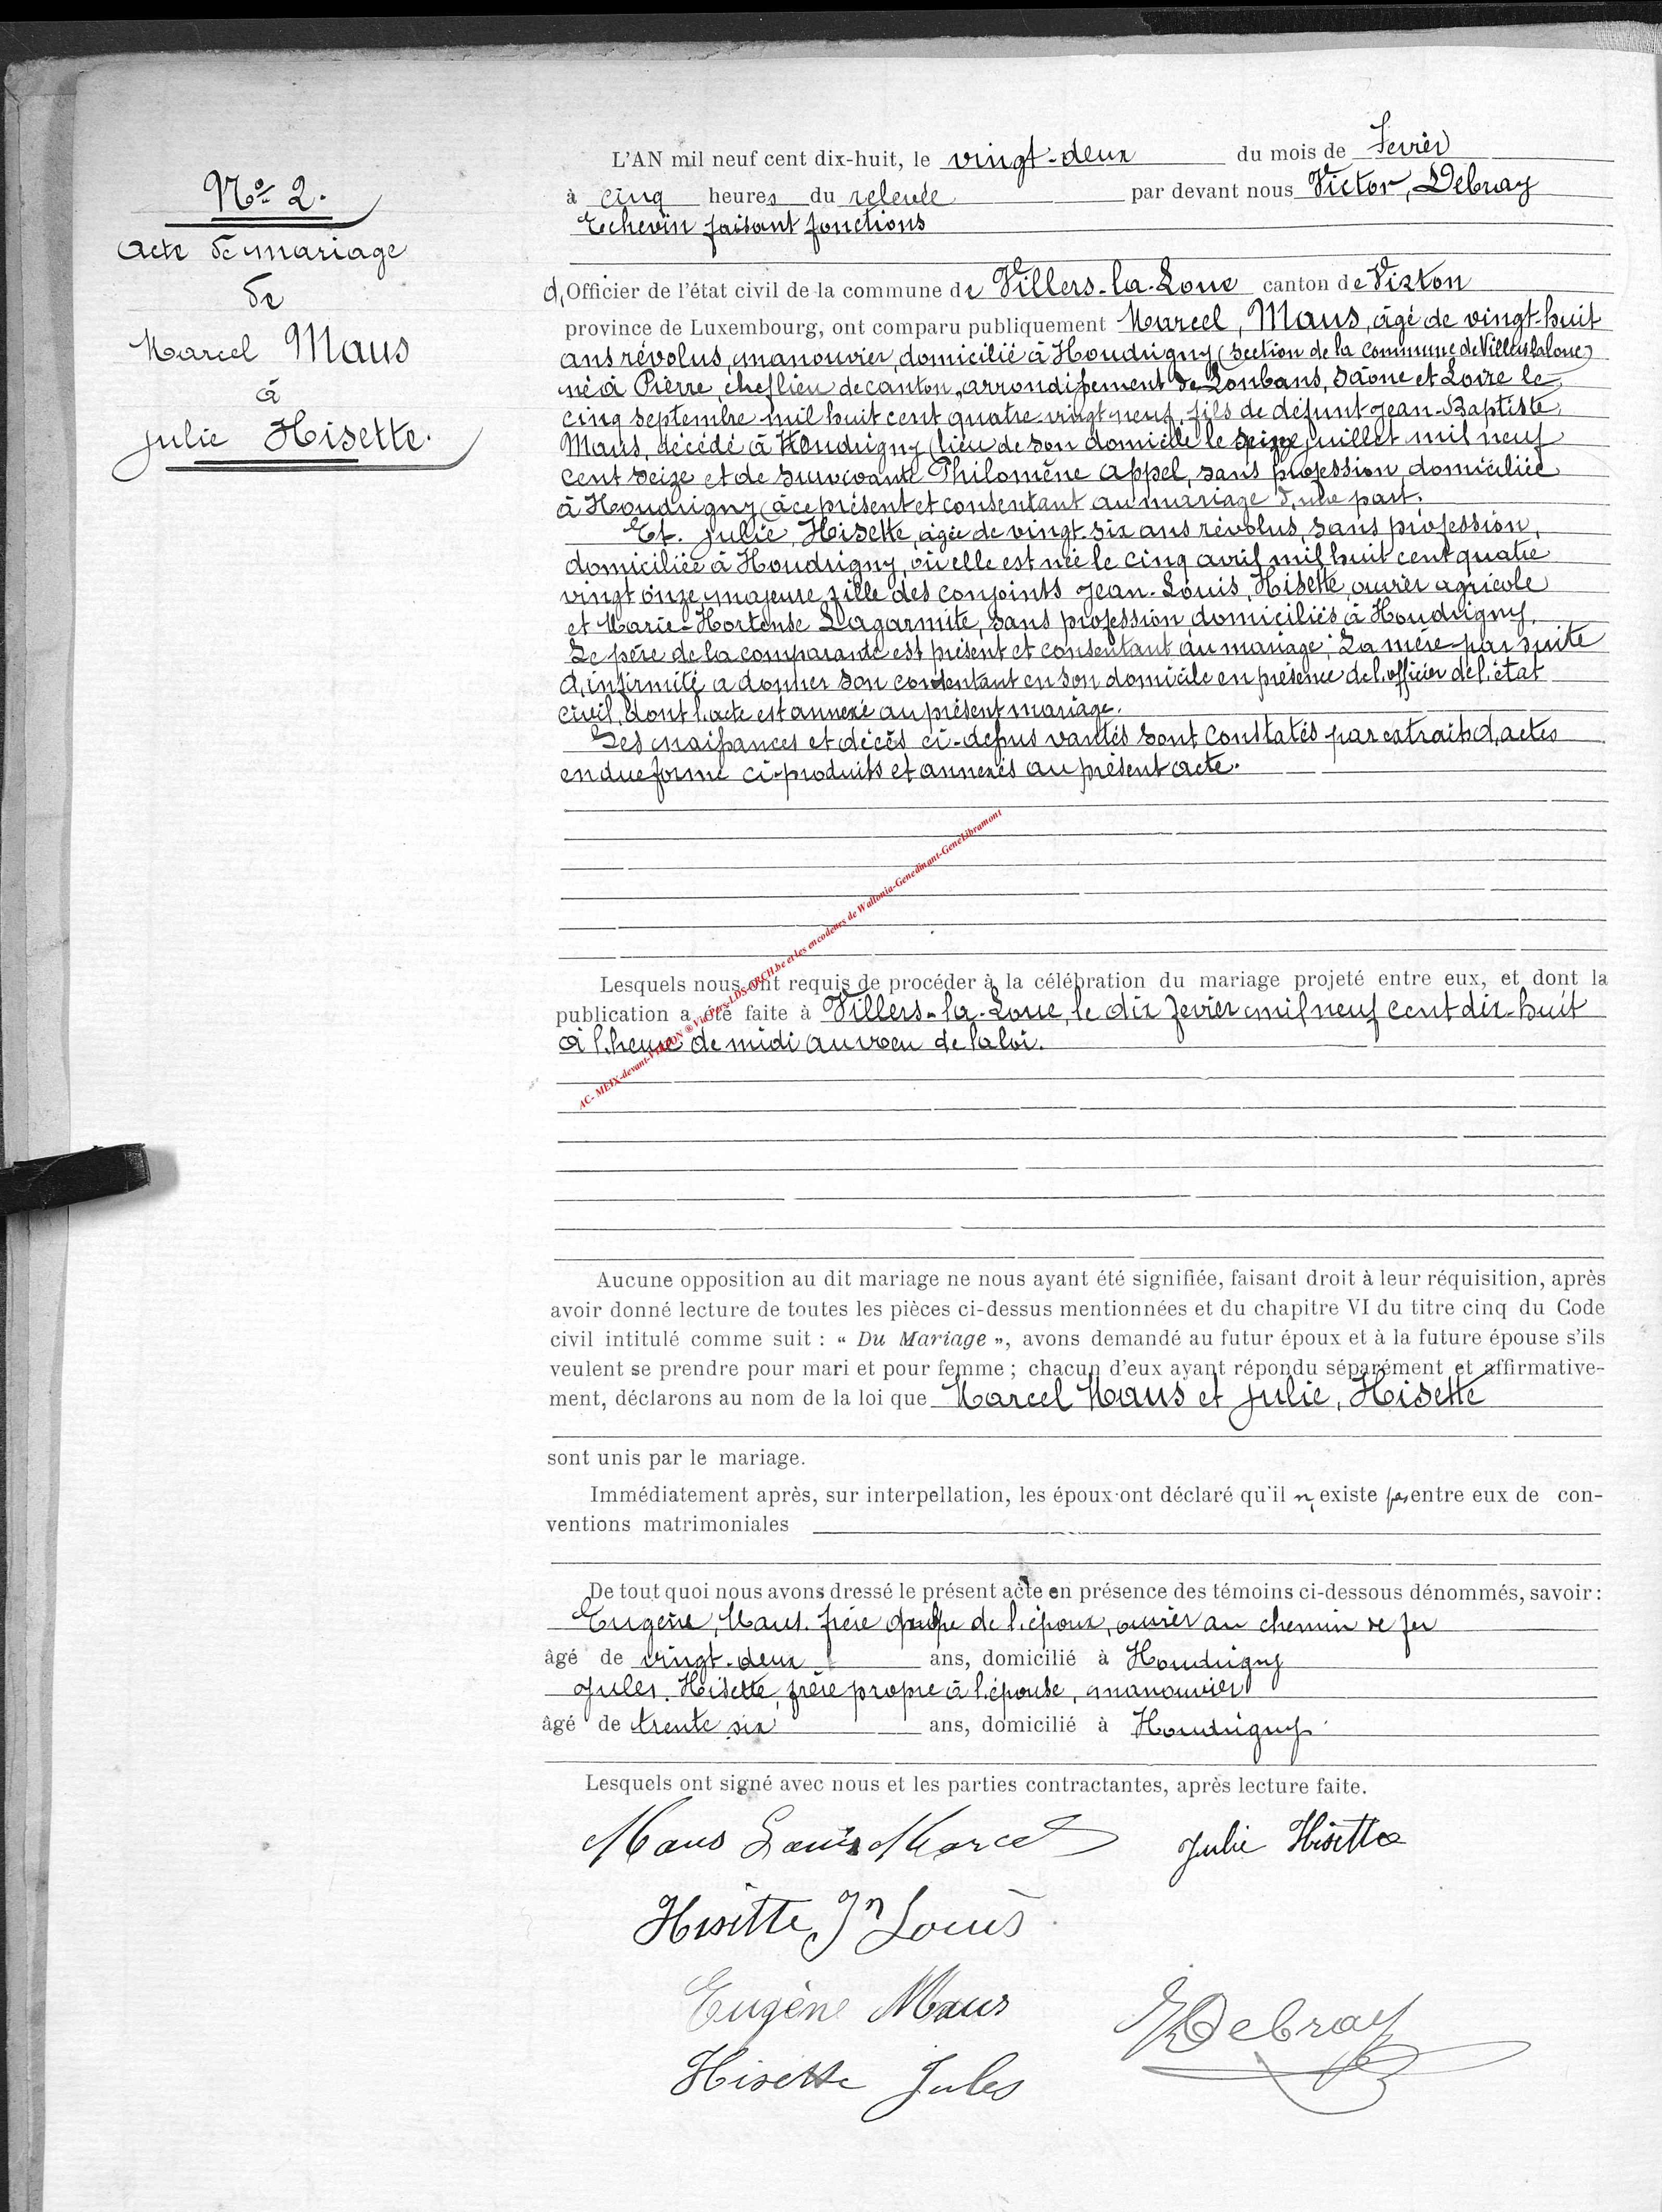 Nº 2.
Acte de mariage
de
Marcel Maus
à
Julie Hisette.
L'AN mil neuf cent dix-huit, le vingt-deux du mois de Fevrier
à cinq heures du relevée par devant nous Victor, Debray
Echevin faisant fonctions
d, Officier de l'état civil de la commune de Villers-la-Loue canton de Virton
province de Luxembourg, ont comparu publiquement Marcel, Maus, âgé de vingt-huit
ans révolus, manouvrier, domicilié à Houdrigny (section de la commune de Villerslaloue)
né à Pierre, cheflieu de canton, arrondissement de Louhans, Saône et Loire le
cinq septembre mil huit cent quatre-vingt-neuf, fils de défunt Jean-Baptiste
Maus, décédé à Houdrigny (lieu de son domicile le seize juillet mil neuf
cent seize et de survivante Philomène Appel, sans profession, domiciliée
à Houdrigny (à ce présent et consentant au mariage d,une part.
Et. Julie, Hisette, âgée de vingt-six ans révolus, sans profession,
domiciliée à Houdrigny, où elle est née le cinq avril mil huit cent quatre
vingt onze, majeure, fille des conjoints Jean-Louis, Hisette, ouvrier agricole
et Marie-Hortense Lagarmite, sans profession domiciliés à Houdrigny.
Le père de la comparante est présent et consentant au mariage; La mère par suite
d,infirmité a donner son consentant en son domicile en présence de l,officier de l,état
civil, dont l,acte est annexé au présent mariage.
Les naissances et décès ci-dessus vantés sont constatés par extraits d,actes
en due forme ci-produits et annexés au présent acte.
AC- MEIX-devant-VIRTON ® Via Pars-LDS-ARCH.be et les encodeurs de Wallonia-Genedinant-GeneLibramont
Lesquels nous ont requis de procéder à la célébration du mariage projeté entre eux, et dont la
publication a été faite à Villers-la-Loue, le dix fevrier mil neuf cent dix-huit
à l,heure de midi au vœu de la loi.
Aucune opposition au dit mariage ne nous ayant été signifiée, faisant droit à leur réquisition, après
avoir donné lecture de toutes les pièces ci-dessus mentionnées et du chapitre VI du titre cinq du Code
civil intitulé comme suit : « Du Mariage », avons demandé au futur époux et à la future épouse s'ils
veulent se prendre pour mari et pour femme ; chacun d'eux ayant répondu séparément et affirmative-
ment, déclarons au nom de la loi que Marcel Maus et Julie, Hisette
sont unis par le mariage.
Immédiatement après, sur interpellation, les époux ont déclaré qu'il n, existe pas entre eux de con-
ventions matrimoniales
De tout quoi nous avons dressé le présent acte en présence des témoins ci-dessous dénommés, savoir :
Eugène, Maus. frère de l,époux, ouvrier au chemin de fer
âgé de vingt-deux ans, domicilié à Houdrigny
Jules. Hisette, frère propre à l,épouse, manouvrier
âgé de trente six ans, domicilié à Houdrigny
Lesquels ont signé avec nous et les parties contractantes, après lecture faite.
Maus Louis Marcel Julie Hisette
Hisette Jn Louis
Eugène Maus
Debray
Hisette Jules